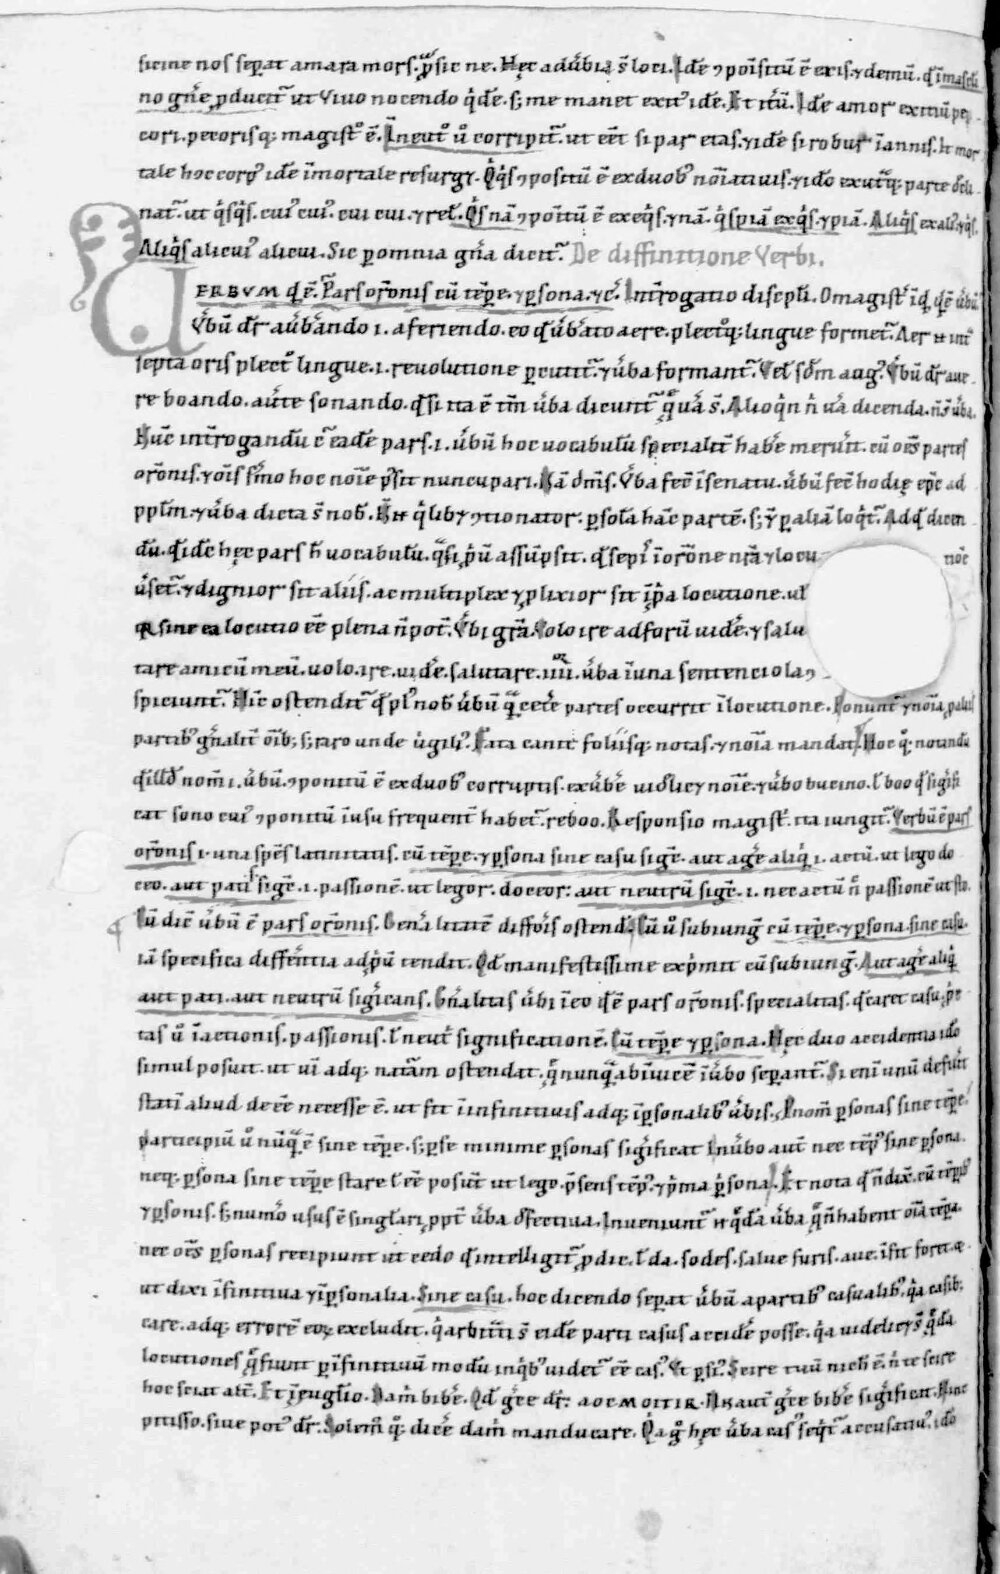 sicine nos seperat amara mors. p̄ sic ne. Hęc adúbia s̄ loci. Idē ꝯpōitū ē ex is. ⁊ demū. qđ ī mascli
no gñe ꝓducit̄ ut Viuo nocendo q̇dē. sꝫ me manet exitꝰ idē. Et it̄ū. Idē amor exitiū pe
cori. pecorisqꝫ magistᵒ ē. In neutᵒ ů corripit̄. ut eēt si par etas. ⁊ idē si robur īannis. Et mor
tale hoc corpꝰ idē īmortale resurgꝫ. Q̇sq̇s ꝯpositū ē ex duobꝰ nōīatiuis. ⁊ idō ex utᵃqꝫ parte decli
nat̄. ut q̇sq̇s. cuiꝰ cuiꝰ. cui cui. ⁊ rel̄. Q̇s nā ꝯpōitū ē ex eo q̇s. ⁊ nā. q̇spiā ex q̇s. ⁊ piā. Aliq̇s ex aliꝰ ⁊ q̇s.
Aliq̇s alicuiꝰ alicui. Sic ꝑ omnia gn̄a dicit̄. De diffinitione Verbi.
VERBVM qđ ē. Pars orōnis cū tēpe. ⁊ ꝑsona. ⁊ cꝰ. Int̄rogatio discipl̄i. O magistᵉ īq̄. qđ ē úbū.
Vbū dr̄ a úbando .i. a feriendo. eo qđ úbato aere. plectᵒqꝫ lingue formet̄. Aer inť
septa oris plectᵒ lingue .i. reuolutione percutit̄. ⁊ úba formant̄. Vel sc̄dm augꝰ. Vbū dr̄ aure
re boando. aúte sonando. qđsi ita ē tm̄ úba dicunt̄ q̄ uā s̄. Alioq̇n n̄ uā dicenda. n̄ s̄ úba.
Nūc int̄rogandū ē eadē pars .i. úbū hoc uocabulū specialit̄ habē merúit. cū oēs partes
orōnis. ⁊ oīs s̄mo hoc nōīe p̄sit nuncupari. Nā dm̄s. Vba fecē ī senatu. úbū fecē hodie ep̄c ad
ppl̄m. ⁊ úba dicta s̄ nob̄. q̇libꝫ ꝯtionator. ꝑ sola hāc partē. sꝫ ⁊ ꝑ aliā loq̇t̄. Ad qđ dicen
dū. qđ idē hęc pars h̄ uocabulū. q̄si p̄ū assūpsit. qđ sepiꝰ ī orōne nr̄a ⁊ locu nōē
úset̄. ⁊ dignior sit aliis. ac multiplex ⁊ ꝓlixior sit īp̄a locutione. ul̄
sine ea locutio eē plena n̄ potꝰ. Vbi gr̄a. Volo ire ad forū uidē. ⁊ salu
tare amicū meū. uolo. ire. uidē. salutare. IIII. úba ī una sentenciola ꝯ
spiciunt̄. Hīc ostendit̄ qđ plꝰ nob̄ úbū q̄ cetē partes occurrit ī locutione. Ponunt̄ ⁊ nōīa p aliis
partibꝰ gn̄alit̄ oīb; sꝫ raro unde uirgiliꝰ. Fata canit foliisqꝫ notas. ⁊ nōīa mandat. Hoc qᵒqꝫ notandū
qđ illđ nom̄ .i. úbū. ꝯponitū ē ex duobꝰ corruptis. ex úbē uidelicꝫ nōīe. ⁊ úbo bucino. ł boo qđ sigīfi
cat sono cuiꝰ ꝯponitū ī usu frequent̄ habet̄. reboo. Responsio magistᵢ. ita iungit̄. Verbū ē pars
orōnis .i. una sp̄es latinitatis. cū tēpe. ⁊ ꝑsona sine casu sigē. aut agē aliq̇ .i. actū. ut lego do
ceo. aut pati sigē .i. passionē. ut legor. doceor: aut neutrū sigē .i. nec actū n̄ passionē ut sto.
Cū dic̄ úbū ē pars orōnis. Genāl̄itatē diffōis ostend̄. Cū ů subiung̃ cū tēpe. ⁊ ꝑsona. sine casu.
iā specifica diffēntia ad p̄ū tendit. Qđ manifestissime expmit cū subiung̃. Aut agē aliq̇
aut pati. aut neutrū sigīcans. Gn̄alitas úbi ī eo qđ ē pars orōnis. specialitas. qđ caret casu. p̄e
tas ů ī actionis. passionis. ł neutᵢ significationē. Cū tēpe ⁊ ꝑsona. Hęc duo accidentia idō
simul posuit. ut uī adqꝫ natam ostendat. q̄ nunq̄ ab īuicē ī úbo sepant̄. Si enī unū defuit
statī aliud deeē necesse ē. ut fit ī infinitiuis adqꝫ īꝑsonalibꝰ úbis. Pnom̄ ꝑsonas sine tēpe.
participiū ů nūq̄ ē sine tēpe. sꝫ ꝑ se minime ꝑsonas sigīficat. In úbo aut̄ nec tēpꝰ sine ꝑsona.
neqꝫ ꝑsona sine tēpe stare ł eē possit ut lego. p̄sens tēpꝰ. ⁊ p̄ma ꝑsona. Et nota qđ n̄ dix̄. cū tēpibꝰ
⁊ ꝑsonis. sꝫ numᵒ usus ē singl̄ari ꝓpt̄ úba defectiua. Inueniunt̄ q̄dā úba q̄ n̄ habent oīa tēpa.
nec oēs ꝑsonas recipiunt ut cedo qđ intelligit̄ ꝓ dic. ł da. sodes. salue furis. aue. īfit foret
ut dixi īfinitiua ⁊ īꝑsonalia. Sine casu. hoc dicendo sepat úbū a partibꝰ casualibꝰ. q̇a casib;
care. adqꝫ errorē eoꝝ excludit. q̇ arbitᵃti s̄ eidē parti casus accidē posse. q̇a uidelicꝫ s̄ q̄dā
locutiones q̄ fiunt ꝑ īfinitiuū modū in q̇bꝰ uidet̄ eē casꝰ. Vt ꝑsiꝰ. Scire tuū nich̄ ē. n̄ te scire
hoc sciat alt̄. Et ī euglīo. Dam̄ bibē. Qđ grēce dr̄: Aut̄ grēce bibē sigīficat. Hinc
pitisso. siue potꝰ dr̄. Solem̄ qᵒqꝫ dicē dam̄ manducare. Q̇a gᵒ hęc úba casꝰ seq̇t̄ accusatiuꝰ. idō